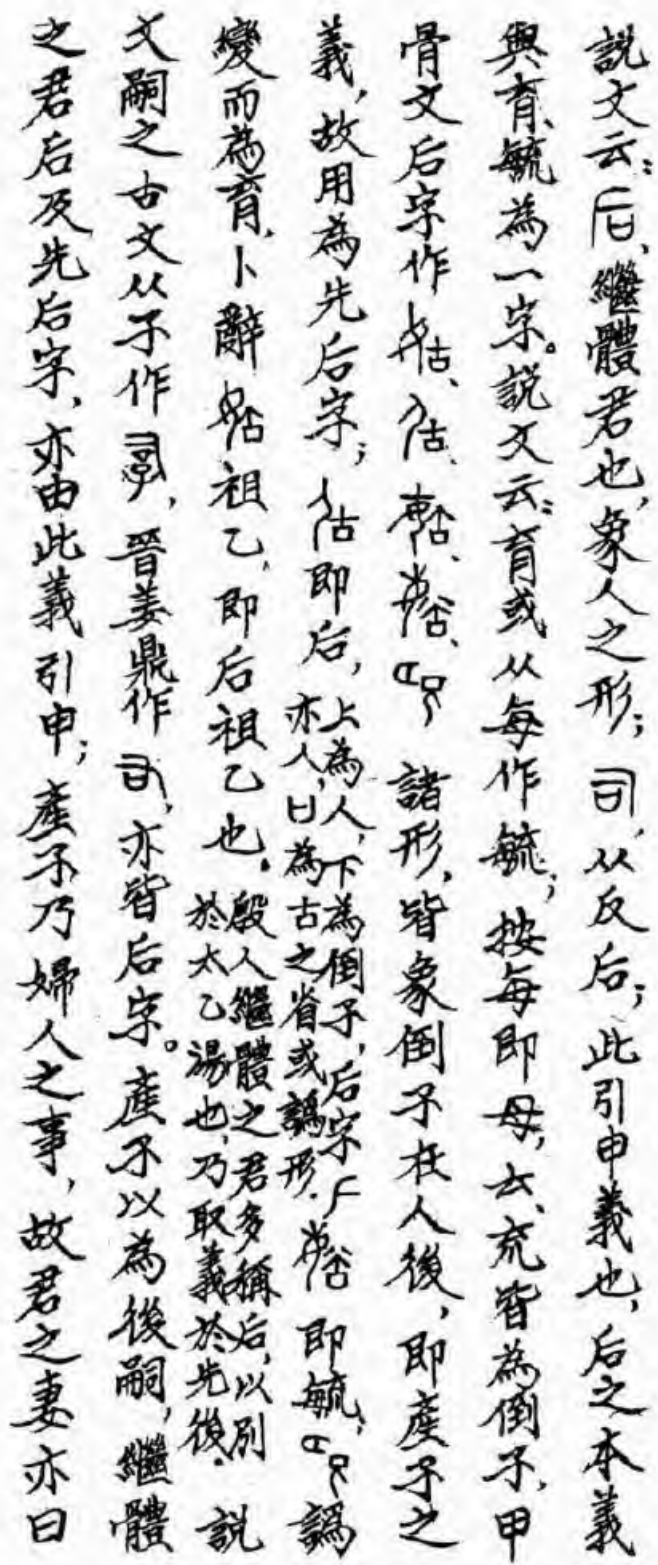 說文云：后、繼體君也，象人之形；司，从反后；此引申義也，后之本義
與育、毓為一字。說文云：育或从每作毓；按每即母，𠫓、㐬皆為倒子，甲
骨文后字作、、、、諸形，皆象倒子在人後，即產子之
義，故用為先后字；即后，上為人，下為倒子，后字𠂆亦人，口為古之省或譌形．即毓，譌
變而為育，卜辭祖乙，即后祖乙也．殷人繼體之君多稱后，以別於太乙湯也，乃取義於先後．說
文嗣之古文从子作，晉姜鼎作，亦皆后字。產子以為後嗣，繼體
之君后及先后字，亦由此義引申；產子乃婦人之事，故君之妻亦曰